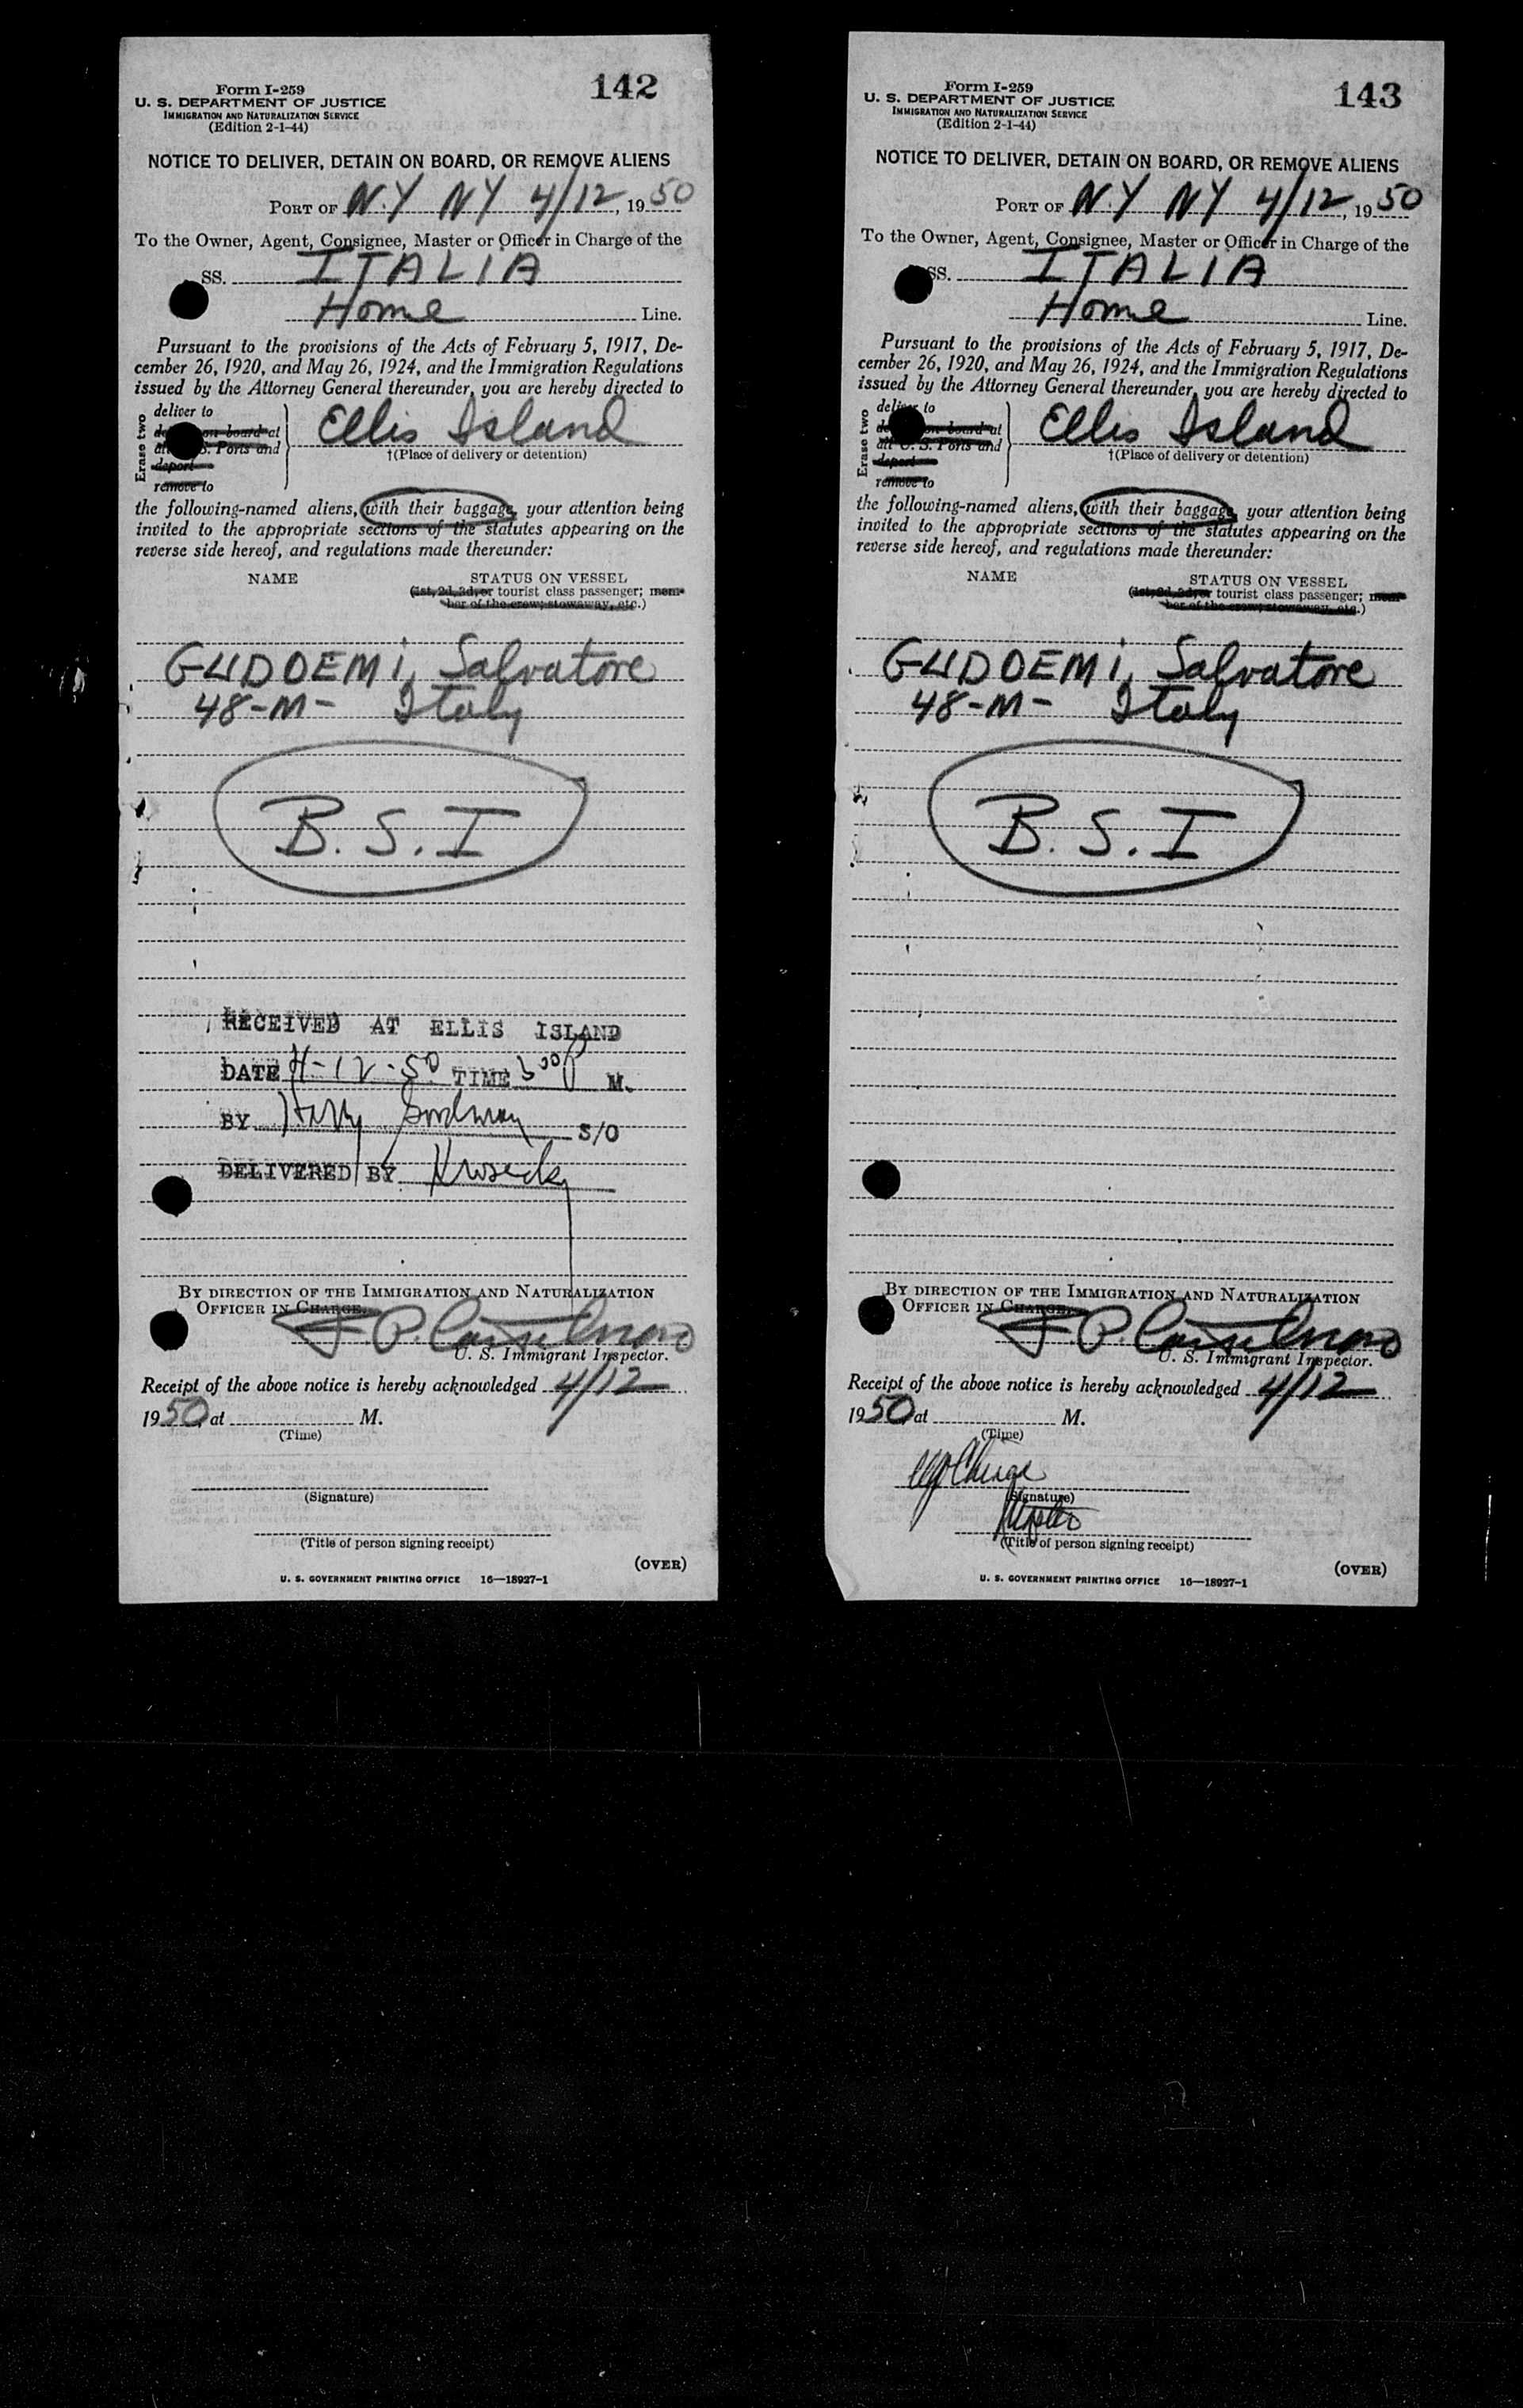 142
Form I-259
U. S. DEPARTMENT OF JUSTICE
IMMIGRATION AND NATURALIZATION SERVICE
(Edition 2-1-44)
NOTICE TO DELIVER, DETAIN ON BOARD, OR REMOVE ALIENS
PORT OF N.Y NY 4/12, 1950
To the Owner, Agent, Consignee, Master or Officer in Charge of the
SS. ITALIA
Home Line.
Pursuant to the provisions of the Acts of February 5, 1917, De-
cember 26, 1920, and May 26, 1924, and the Immigration Regulations
issued by the Attorney General thereunder, you are hereby directed to
Erase two
deliver to
on board at
S. Ports and
deport
remove to
Ellis Island
†(Place of delivery or detention)
the following-named aliens, with their baggage, your attention being
invited to the appropriate sections of the statutes appearing on the
reverse side hereof, and regulations made thereunder:
NAME STATUS ON VESSEL
(1st, 2d, 3d, or tourist class passenger; mem-
ber of the crew; stowaway, etc.)
GUDOEMI, Salvatore
48-M- Italy
B.S.I
RECEIVED AT ELLIS ISLAND
DATE 4-12-50 TIME 300P M.
BY Harry S/O
DELIVERED BY
BY DIRECTION OF THE IMMIGRATION AND NATURALIZATION
OFFICER IN CHARGE.
P.
U. S. Immigrant Inspector.
Receipt of the above notice is hereby acknowledged 4/12
1950, at M.
(Time)
(Signature)
(Title of person signing receipt)
(OVER)
U. S. GOVERNMENT PRINTING OFFICE 16—18927-1
143
Form I-259
U. S. DEPARTMENT OF JUSTICE
IMMIGRATION AND NATURALIZATION SERVICE
(Edition 2-1-44)
NOTICE TO DELIVER, DETAIN ON BOARD, OR REMOVE ALIENS
PORT OF N.Y NY 4/12, 1950
To the Owner, Agent, Consignee, Master or Officer in Charge of the
SS. ITALIA
Home Line.
Pursuant to the provisions of the Acts of February 5, 1917, De-
cember 26, 1920, and May 26, 1924, and the Immigration Regulations
issued by the Attorney General thereunder, you are hereby directed to
Erase two
deliver to
on board at
all U. S. Ports and
deport
remove to
Ellis Island
†(Place of delivery or detention)
the following-named aliens, with their baggage, your attention being
invited to the appropriate sections of the statutes appearing on the
reverse side hereof, and regulations made thereunder:
NAME STATUS ON VESSEL
(1st, 2d, 3d, or tourist class passenger; mem-
ber of the crew; stowaway, etc.)
GUDOEMI, Salvatore
48-M- Italy
B.S.I
BY DIRECTION OF THE IMMIGRATION AND NATURALIZATION
OFFICER IN CHARGE.
P.
U. S. Immigrant Inspector.
Receipt of the above notice is hereby acknowledged 4/12
1950 at M.
(Time)
(Signature)
(Title of person signing receipt)
(OVER)
U. S. GOVERNMENT PRINTING OFFICE 16—18927-1